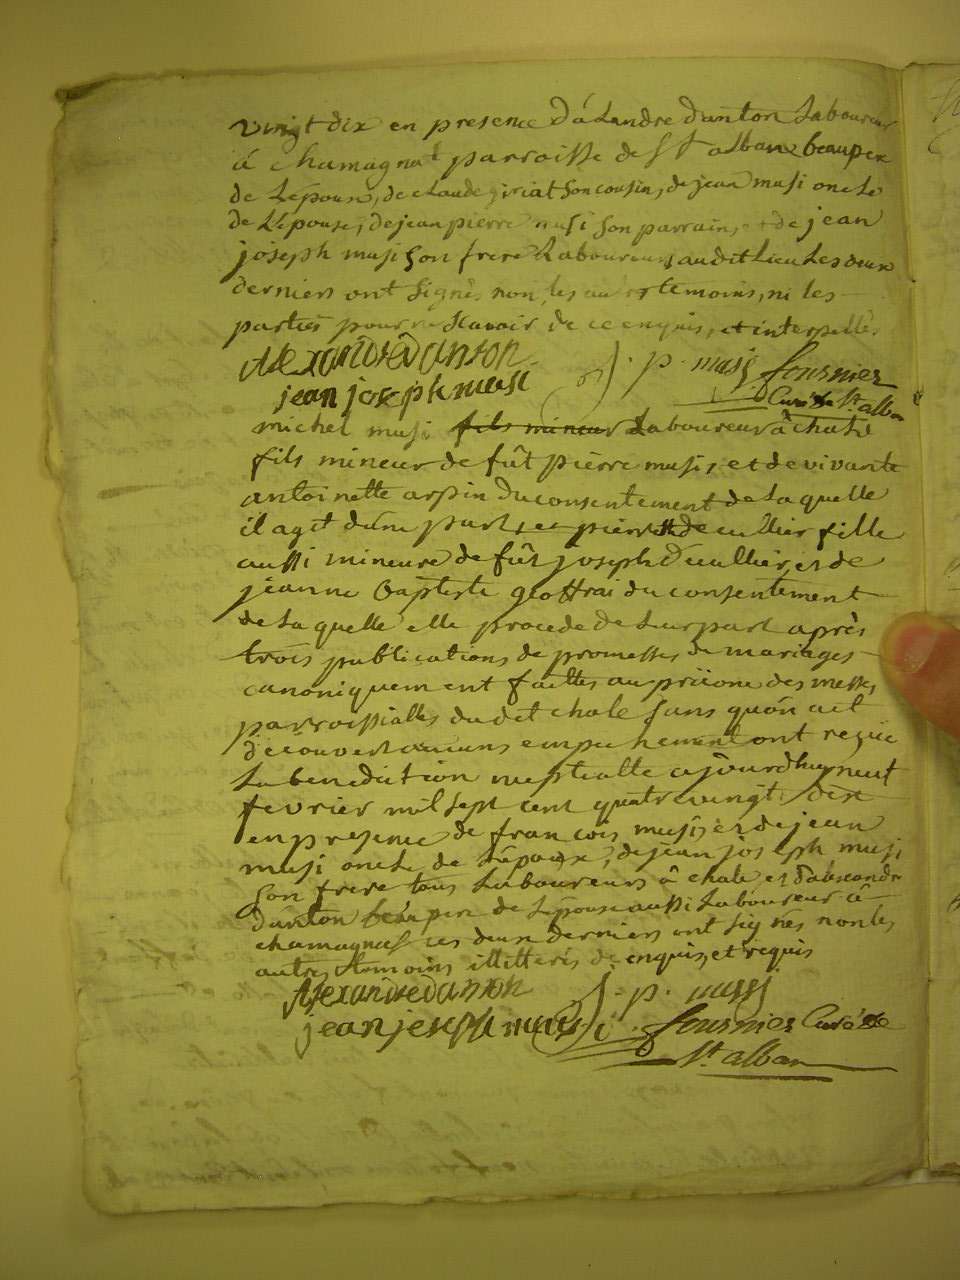 vingt dix en presence d'aLandre danton Laboureur
à chamagnat parroisse de St alban beaupere
de L'epouse, de claude giriat son cousin, de jean musi oncle
de L'epouse, de jean pierre musi son parrain, et de jean
joseph musi son frere Laboureurs audit Lieu Les deux
derniers ont signés non les autres temoins, ni les
parties pour ne sçavoir de ce enquis, et interpellés
Alexandre danton j. p. musy fournier
jean joseph musi Curé de St. alban
michel musi fils mineur Laboureur à chale
fils mineur de fût pierre musi, et de vivante
antoinette arpin du consentement de Laquelle
il agit d'une part, et pierrette decullier fille
aussi mineure de fût joseph decullier, et de
jeanne baptiste geoffrai du consentement
de Laquelle elle procede de L'autre part après
trois publications de promesses de mariages
canoniquement faittes au prône des messes
parroissialles dudit chale sans qu'on ait
découvert aucuns empechement ont reçue
La benediction nuptialle ajourdhuy neuf
fevrier mil sept cent quatre vingt dix
en presence de francois musi, et de jean
musi oncle de L'epoux, de jean joseph musi
son frere tous Laboureurs à chale et d'alexandre
danton beaupere de L'epouse aussi Laboureur à
chamagnat ces deux derniers ont signés non les
autres temoins illitterés de enquis, et requis
Alexandre danton j. p. mussi
jean joseph musi fournier Curé de
St. alban